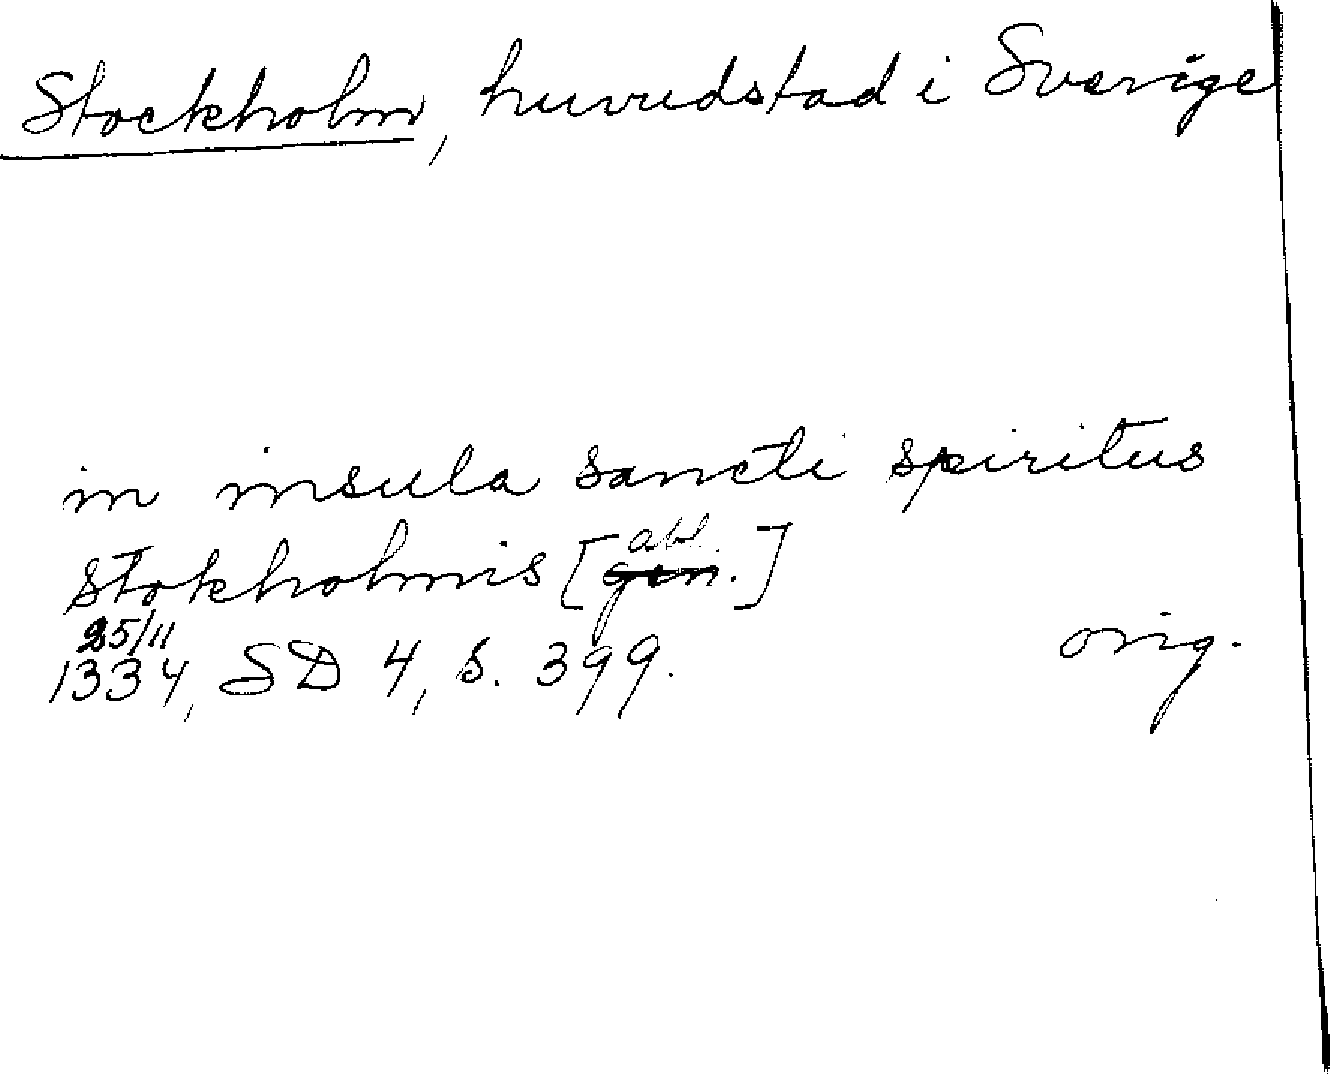 Stockholm, huvudstad i Sverige
in insula sancti spiritus
stokholmis [abl. gen.]
25/11
1334, SD 4, s. 399. orig.